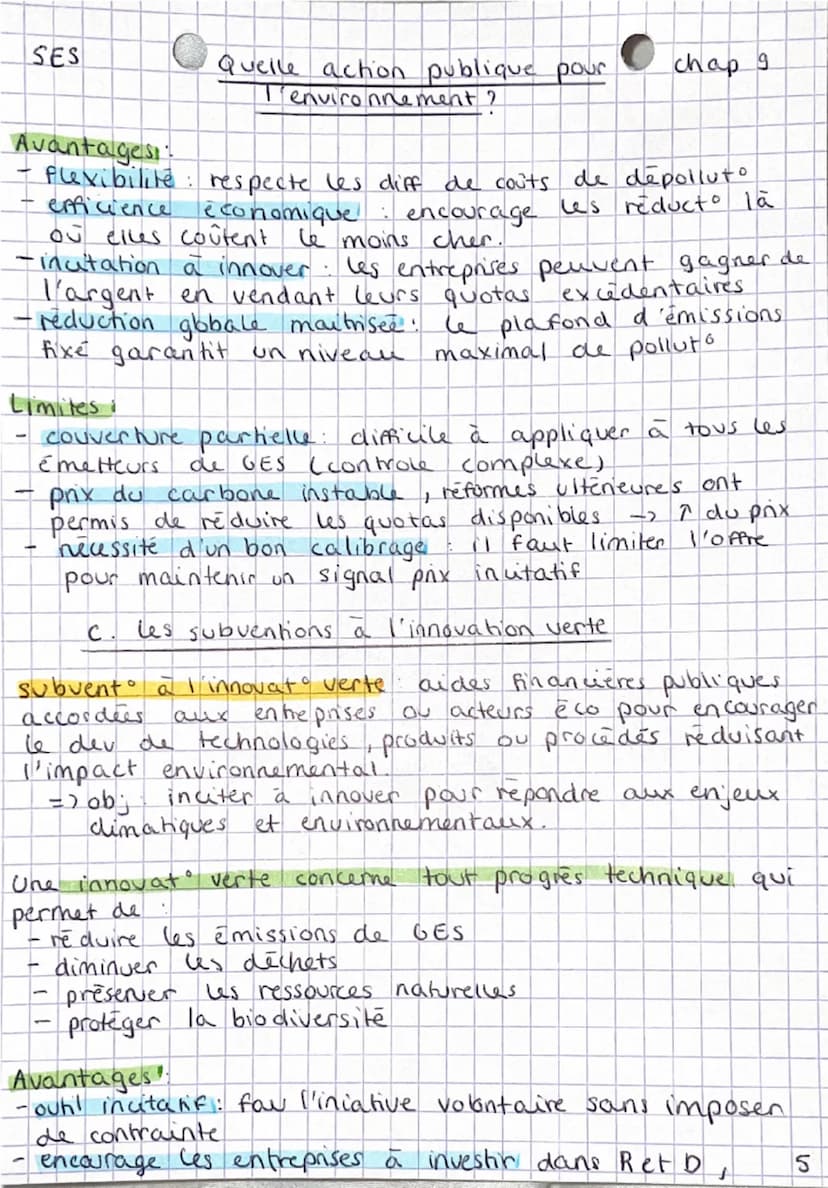 SES
Quelle action publique pour
chap 9
l'environnement ?
Avantages :
- flexibilité : respecte les diff de coûts de dépollut°
- efficience économique : encourage les réduct° là
où elles coûtent le moins cher.
- incitation à innover : les entreprises peuvent gagner de
l'argent en vendant leurs quotas excédentaires
- réduction globale maitrisée : le plafond d'émissions
fixé garantit un niveau maximal de pollut°
Limites :
- couverture partielle : difficile à appliquer à tous les
émetteurs de GES (controle complexe)
- prix du carbone instable, réformes ultérieures ont
permis de réduire les quotas disponibles -> ↑ du prix
- nécessité d'un bon calibrage : il faut limiter l'offre
pour maintenir un signal prix incitatif
c. les subventions à l'innovation verte
subvent° à l'innovat° verte : aides financières publiques
accordées aux entreprises ou acteurs éco pour encourager
le dev de technologies, produits ou procédés réduisant
l'impact environnemental.
=> obj : inciter à innover pour répondre aux enjeux
climatiques et environnementaux.
Une innovat° verte concerne tout progrès technique qui
permet de :
- réduire les émissions de GES
- diminuer les déchets
- préserver les ressources naturelles
- protéger la biodiversité
Avantages :
- outil incitatif : fav l'iniative volontaire sans imposer
de contrainte
- encourage les entreprises à investir dans R et D,
5